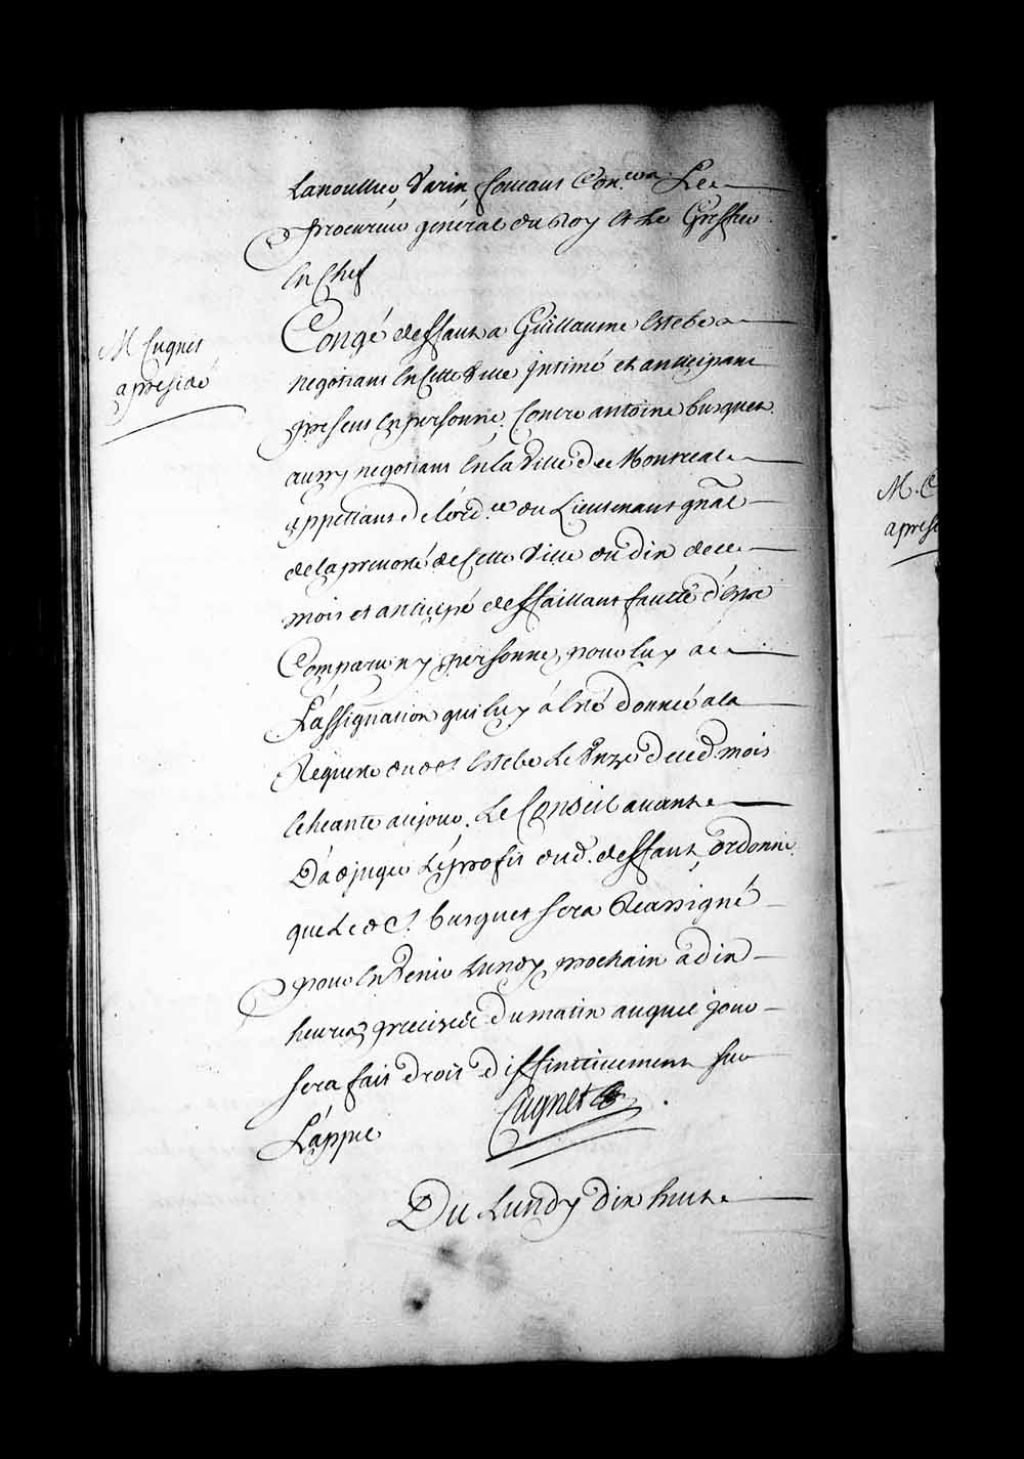 Lanoullier Varin foucaut Con.ers Le
Procureur général du Roy et Le Greffier
En Chef
M Cugnet
a presidé
Congé deffaut a Guillaume Estebe
negotiant En Cette Ville Intimé et anticipant
present En personne. Contre antoine busquet
aussy negotiant En la Ville de Montreal
appellant de l'ord.ce du Lieutenant gnãl
de la prevosté de Cette Ville du dix de ce
mois et anticipé deffaillant fautte d'estre
Comparu ny personne pour luy a
L'assignation qui luy á Eté donnée a la
Requeste dud. S.r Estebe Le Onze de ced. mois
Echeante aujour. Le Conseil avant
D'adjuger Le profit dud. deffaut, ordonne
que Led S.r busquet sera Reassigné
pour En Venir Lundy prochain a dix
heures precises du matin auquel jour
sera fait droit diffinitivement sur
L'appel
Cugnet
Du Lundy dix huit
M. C
apresi